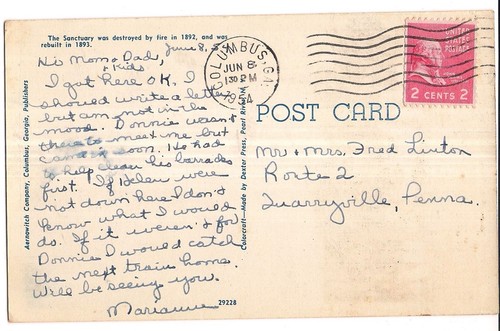 The Sanctuary was destroyed by fire in 1892, and was
rebuilt in 1893.
June 8, 54
Hi Mom & Dad,
& Kids
I got here OK. I
should write a letter
but am not in the
mood. Donnie wasn't
there to meet me but
came soon. He had
to help clean his baracks
first. If Helen were
not down here I don't
know what I would
do. If it weren't for
Donnie I would catch
the next train home.
We'll be seeing you.
Marianne
29228
Aeronovitch Company, Columbus, Georgia, Publishers
Colorcraft—Made by Dexter Press, Pearl River, N.Y.
COLUMBUS, GA.
JUN 8
130 PM
1954
UNITED
STATES
POSTAGE
2 CENTS 2
POST CARD
Mr & Mrs. Fred Linton
Route 2
Quarryville, Penna.